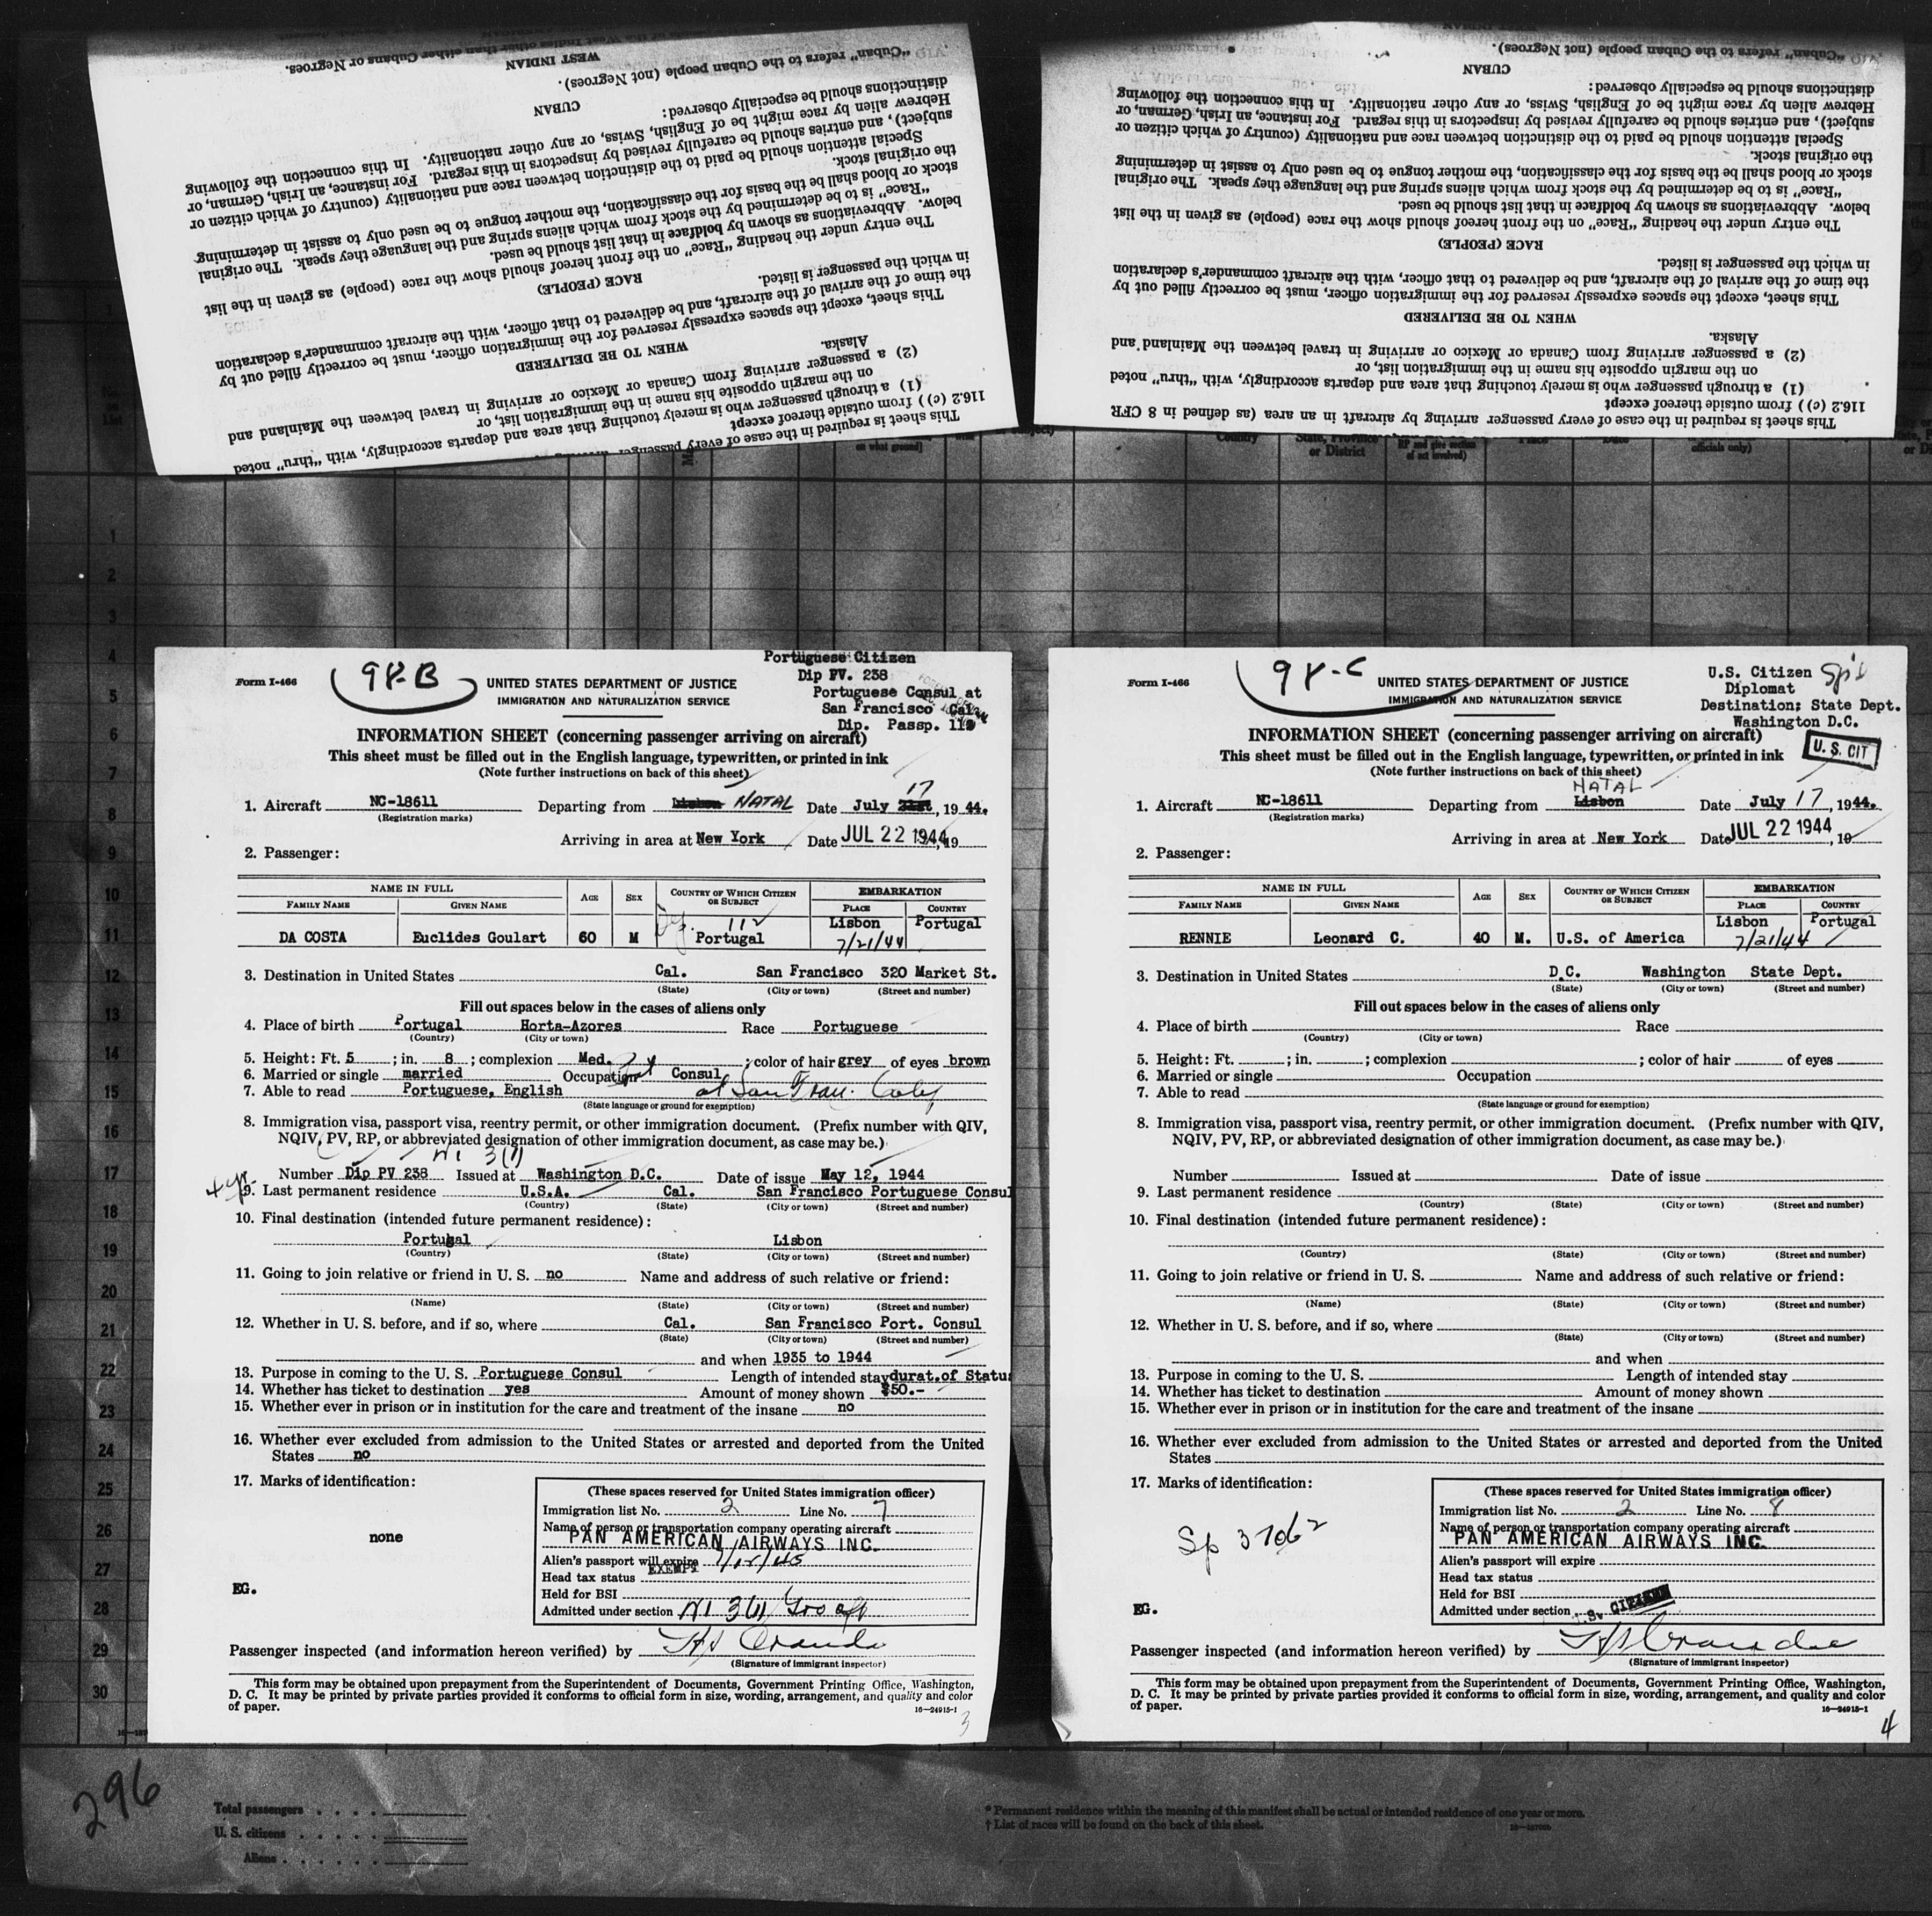 WEST INDIAN
"Cuban" refers to the Cuban people (not Negroes).
CUBAN
distinctions should be especially observed:
Hebrew alien by race might be of English, Swiss, or any other nationality. In this connection the following
subject), and entries should be carefully revised by inspectors in this regard. For instance, an Irish, German, or
Special attention should be paid to the distinction between race and nationality (country of which citizen or
the original stock.
stock or blood shall be the basis for the classification, the mother tongue to be used only to assist in determining
"Race" is to be determined by the stock from which aliens spring and the language they speak. The original
below. Abbreviations as shown by boldface in that list should be used.
The entry under the heading "Race" on the front hereof should show the race (people) as given in the list
RACE (PEOPLE)
in which the passenger is listed.
the time of the arrival of the aircraft, and be delivered to that officer, with the aircraft commander's declaration
This sheet, except the spaces expressly reserved for the immigration officer, must be correctly filled out by
WHEN TO BE DELIVERED
Alaska.
(2) a passenger arriving from Canada or Mexico or arriving in travel between the Mainland and
on the margin opposite his name in the immigration list, or
(1) a through passenger who is merely touching that area and departs accordingly, with "thru" noted
116.2 (c)) from outside thereof except
This sheet is required in the case of every passenger
"Cuban" refers to the Cuban people (not Negroes).
CUBAN
distinctions should be especially observed:
Hebrew alien by race might be of English, Swiss, or any other nationality. In this connection the following
subject), and entries should be carefully revised by inspectors in this regard. For instance, an Irish, German, or
Special attention should be paid to the distinction between race and nationality (country of which citizen or
the original stock.
stock or blood shall be the basis for the classification, the mother tongue to be used only to assist in determining
"Race" is to be determined by the stock from which aliens spring and the language they speak. The original
below. Abbreviations as shown by boldface in that list should be used.
The entry under the heading "Race" on the front hereof should show the race (people) as given in the list
RACE (PEOPLE)
in which the passenger is listed.
the time of the arrival of the aircraft, and be delivered to that officer, with the aircraft commander's declaration
This sheet, except the spaces expressly reserved for the immigration officer, must be correctly filled out by
WHEN TO BE DELIVERED
Alaska.
(2) a passenger arriving from Canada or Mexico or arriving in travel between the Mainland and
on the margin opposite his name in the immigration list, or
(1) a through passenger who is merely touching that area and departs accordingly, with "thru" noted
116.2 (c)) from outside thereof except
This sheet is required in the case of every passenger arriving by aircraft in an area (as defined in 8 CFR
on what ground]
Country State, Province or District
RP and give section of act involved)
officials only)
1
2
3
4
5
6
7
8
9
10
11
12
13
14
15
16
17
18
19
20
21
22
23
24
25
26
27
28
29
30
Portuguese Citizen
Dip PV. 238
Portuguese Consul at
San Francisco Cal.
Dip. Passp. 112
Form I-466
98-B
UNITED STATES DEPARTMENT OF JUSTICE
IMMIGRATION AND NATURALIZATION SERVICE
INFORMATION SHEET (concerning passenger arriving on aircraft)
This sheet must be filled out in the English language, typewritten, or printed in ink
(Note further instructions on back of this sheet)
1. Aircraft NC-18611 Departing from Lisbon NATAL Date July 21st 17, 1944.
(Registration marks)
Arriving in area at New York Date JUL 22 1944, 19
2. Passenger:
NAME IN FULL AGE SEX COUNTRY OF WHICH CITIZEN OR SUBJECT EMBARKATION
FAMILY NAME GIVEN NAME PLACE COUNTRY
DA COSTA Euclides Goulart 60 M 112 Portugal Lisbon 7/21/44 Portugal
3. Destination in United States Cal. San Francisco 320 Market St.
(State) (City or town) (Street and number)
Fill out spaces below in the cases of aliens only
4. Place of birth Portugal Horta-Azores Race Portuguese
(Country) (City or town)
5. Height: Ft. 5; in. 8; complexion Med.; color of hair grey of eyes brown
6. Married or single married Occupation Consul
7. Able to read Portuguese, English at San Fran. Calif
(State language or ground for exemption)
8. Immigration visa, passport visa, reentry permit, or other immigration document. (Prefix number with QIV,
NQIV, PV, RP, or abbreviated designation of other immigration document, as case may be.)
NI 3(1)
Number Dip PV 238 Issued at Washington D.C. Date of issue May 12, 1944
9. Last permanent residence U.S.A. Cal. San Francisco Portuguese Consul
(Country) (State) (City or town) (Street and number)
10. Final destination (intended future permanent residence):
Portugal Lisbon
(Country) (State) (City or town) (Street and number)
11. Going to join relative or friend in U. S. no Name and address of such relative or friend:
(Name) (State) (City or town) (Street and number)
12. Whether in U. S. before, and if so, where Cal. San Francisco Port. Consul
(State) (City or town) (Street and number)
and when 1935 to 1944
13. Purpose in coming to the U. S. Portuguese Consul Length of intended stay durat.of Status
14. Whether has ticket to destination yes Amount of money shown $50.-
15. Whether ever in prison or in institution for the care and treatment of the insane no
16. Whether ever excluded from admission to the United States or arrested and deported from the United
States no
17. Marks of identification:
none
EG.
(These spaces reserved for United States immigration officer)
Immigration list No. 2 Line No. 7
Name of person or transportation company operating aircraft
PAN AMERICAN AIRWAYS INC.
Alien's passport will expire
Head tax status EXEMPT
Held for BSI
Admitted under section NI 3(1)
Passenger inspected (and information hereon verified) by
(Signature of immigrant inspector)
This form may be obtained upon prepayment from the Superintendent of Documents, Government Printing Office, Washington,
D. C. It may be printed by private parties provided it conforms to official form in size, wording, arrangement, and quality and color
of paper.
16—24915-1
3
U.S. Citizen
Diplomat
Destination; State Dept.
Washington D.C.
U. S. CIT
Form I-466
98-C
UNITED STATES DEPARTMENT OF JUSTICE
IMMIGRATION AND NATURALIZATION SERVICE
INFORMATION SHEET (concerning passenger arriving on aircraft)
This sheet must be filled out in the English language, typewritten, or printed in ink
(Note further instructions on back of this sheet)
NATAL
1. Aircraft NC-18611 Departing from Lisbon Date July 17, 1944.
(Registration marks)
Arriving in area at New York Date JUL 22 1944, 19
2. Passenger:
NAME IN FULL AGE SEX COUNTRY OF WHICH CITIZEN OR SUBJECT EMBARKATION
FAMILY NAME GIVEN NAME PLACE COUNTRY
RENNIE Leonard C. 40 M. U.S. of America Lisbon 7/21/44 Portugal
3. Destination in United States D.C. Washington State Dept.
(State) (City or town) (Street and number)
Fill out spaces below in the cases of aliens only
4. Place of birth Race
(Country) (City or town)
5. Height: Ft. ; in. ; complexion ; color of hair of eyes
6. Married or single Occupation
7. Able to read
(State language or ground for exemption)
8. Immigration visa, passport visa, reentry permit, or other immigration document. (Prefix number with QIV,
NQIV, PV, RP, or abbreviated designation of other immigration document, as case may be.)
Number Issued at Date of issue
9. Last permanent residence
(Country) (State) (City or town) (Street and number)
10. Final destination (intended future permanent residence):
(Country) (State) (City or town) (Street and number)
11. Going to join relative or friend in U. S. Name and address of such relative or friend:
(Name) (State) (City or town) (Street and number)
12. Whether in U. S. before, and if so, where
(State) (City or town) (Street and number)
and when
13. Purpose in coming to the U. S. Length of intended stay
14. Whether has ticket to destination Amount of money shown
15. Whether ever in prison or in institution for the care and treatment of the insane
16. Whether ever excluded from admission to the United States or arrested and deported from the United
States
17. Marks of identification:
Sp 37062
EG.
(These spaces reserved for United States immigration officer)
Immigration list No. 2 Line No. 8
Name of person or transportation company operating aircraft
PAN AMERICAN AIRWAYS INC.
Alien's passport will expire
Head tax status
Held for BSI
Admitted under section U.S. CITIZEN
Passenger inspected (and information hereon verified) by
(Signature of immigrant inspector)
This form may be obtained upon prepayment from the Superintendent of Documents, Government Printing Office, Washington,
D. C. It may be printed by private parties provided it conforms to official form in size, wording, arrangement, and quality and color
of paper.
16—24915-1
4
296
Total passengers
U. S. citizens
Aliens
* Permanent residence within the meaning of this manifest shall be actual or intended residence of one year or more.
† List of races will be found on the back of this sheet.